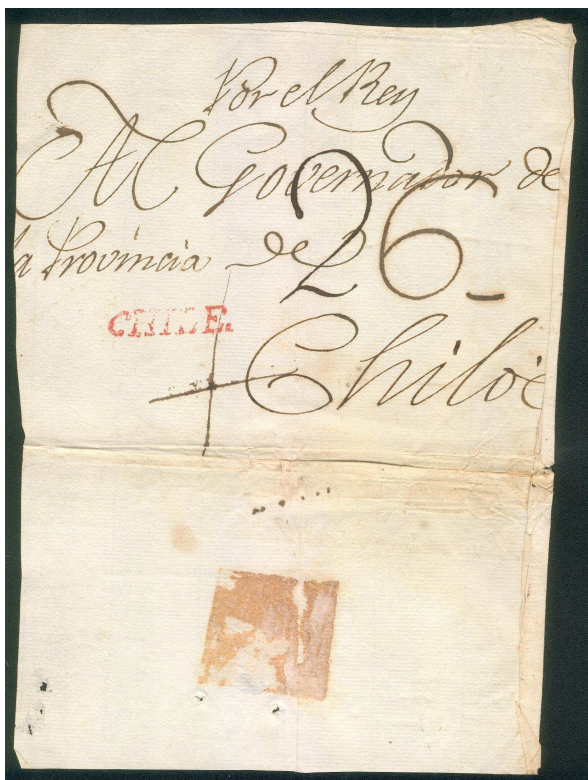 Por el Rey
Al Governador de
la Provincia de
26
CHILE.
Chiloè